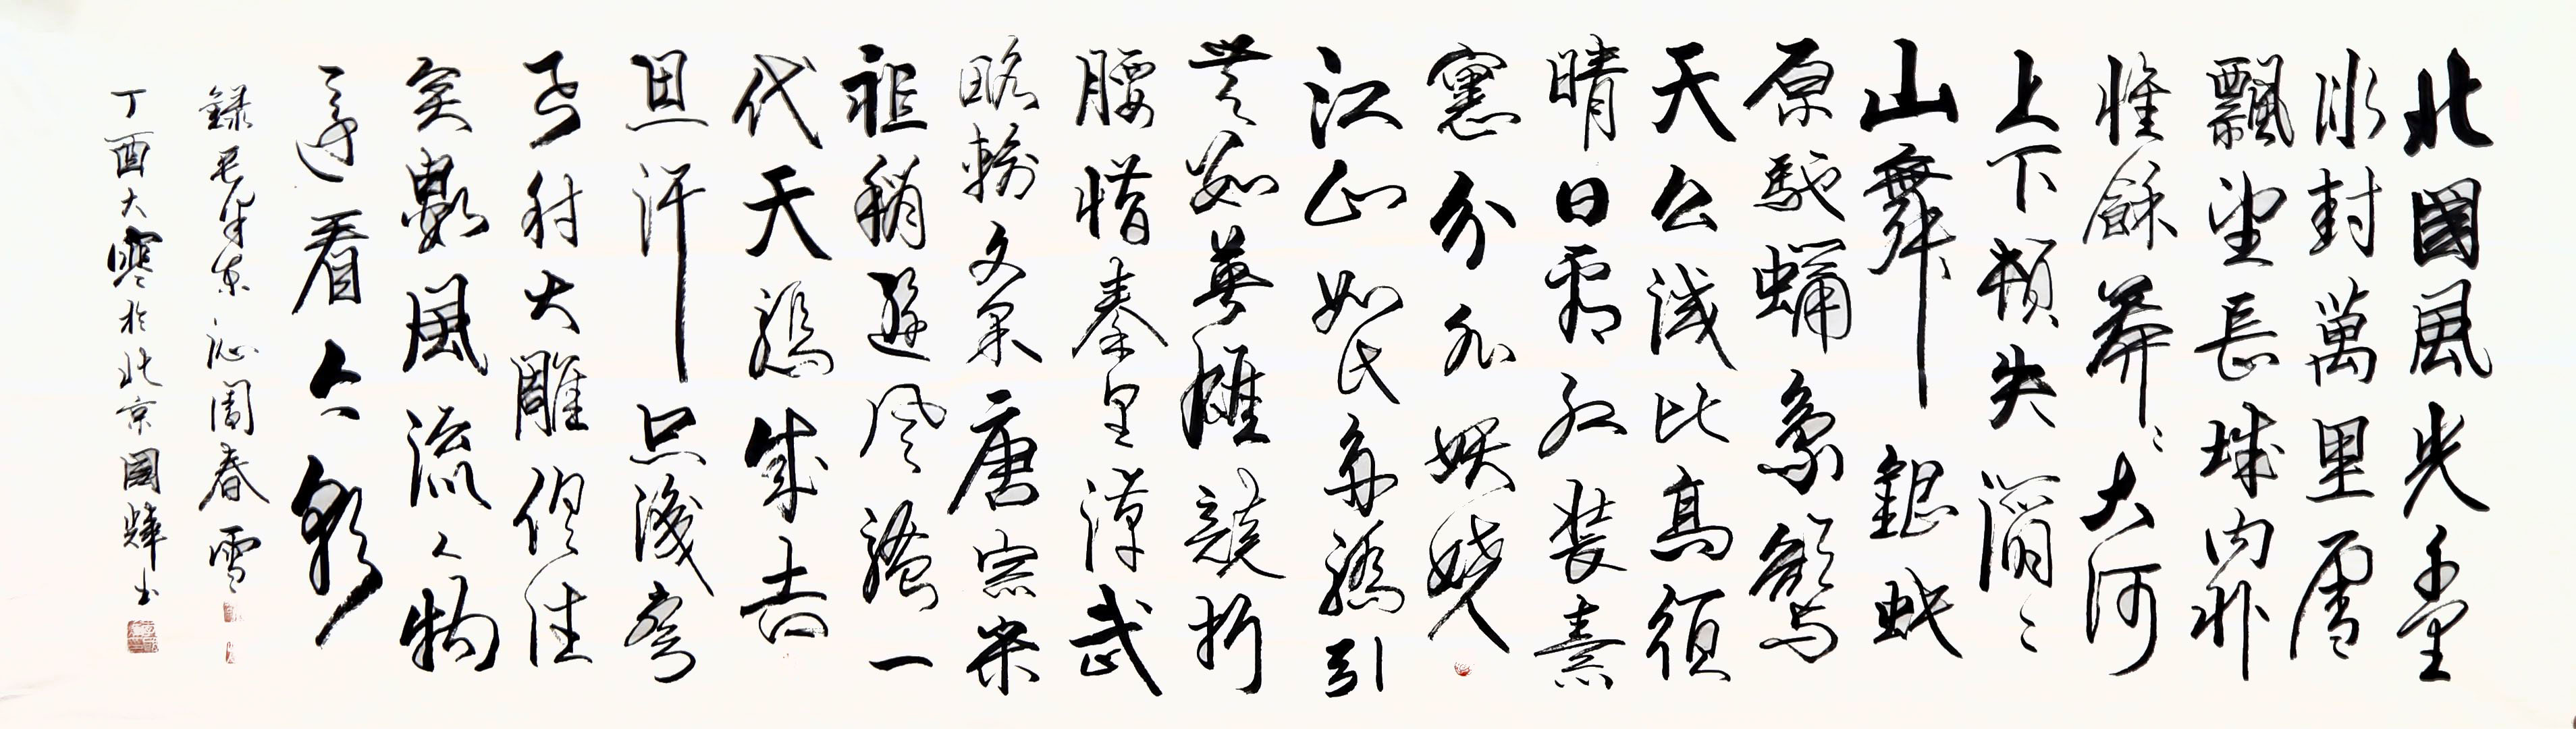 北國風光千里
冰封萬里雪
飄望長城內外
惟餘莽々大河
上下頓失滔々
山舞銀蛇
原馳蠟象欲與
天公試比高須
晴日看紅裝素
裹分外妖嬈
江山如此多嬌引
無數英雄競折
腰惜秦皇漢武
略輸文采唐宗宋
祖稍遜風騷一
代天驕成吉
思汗只識彎
弓射大雕俱往
矣數風流人物
還看今朝
錄毛澤東沁園春雪
丁酉大寒於北京國輝書